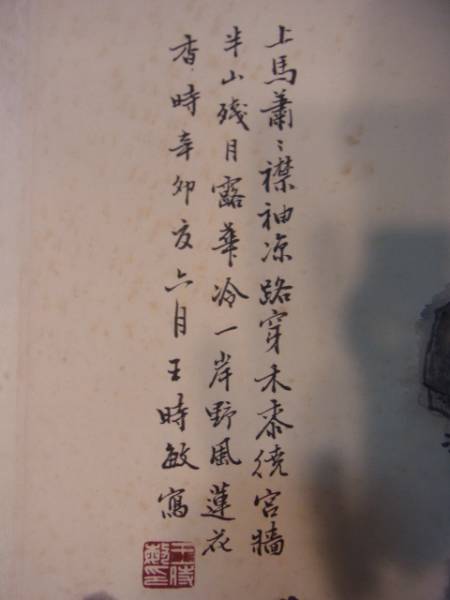 上馬蕭〻襟袖凉路穿禾黍繞宮牆
半山殘月露華冷一岸野風蓮花
香時辛卯夏六月王時敏寫
王時敏印